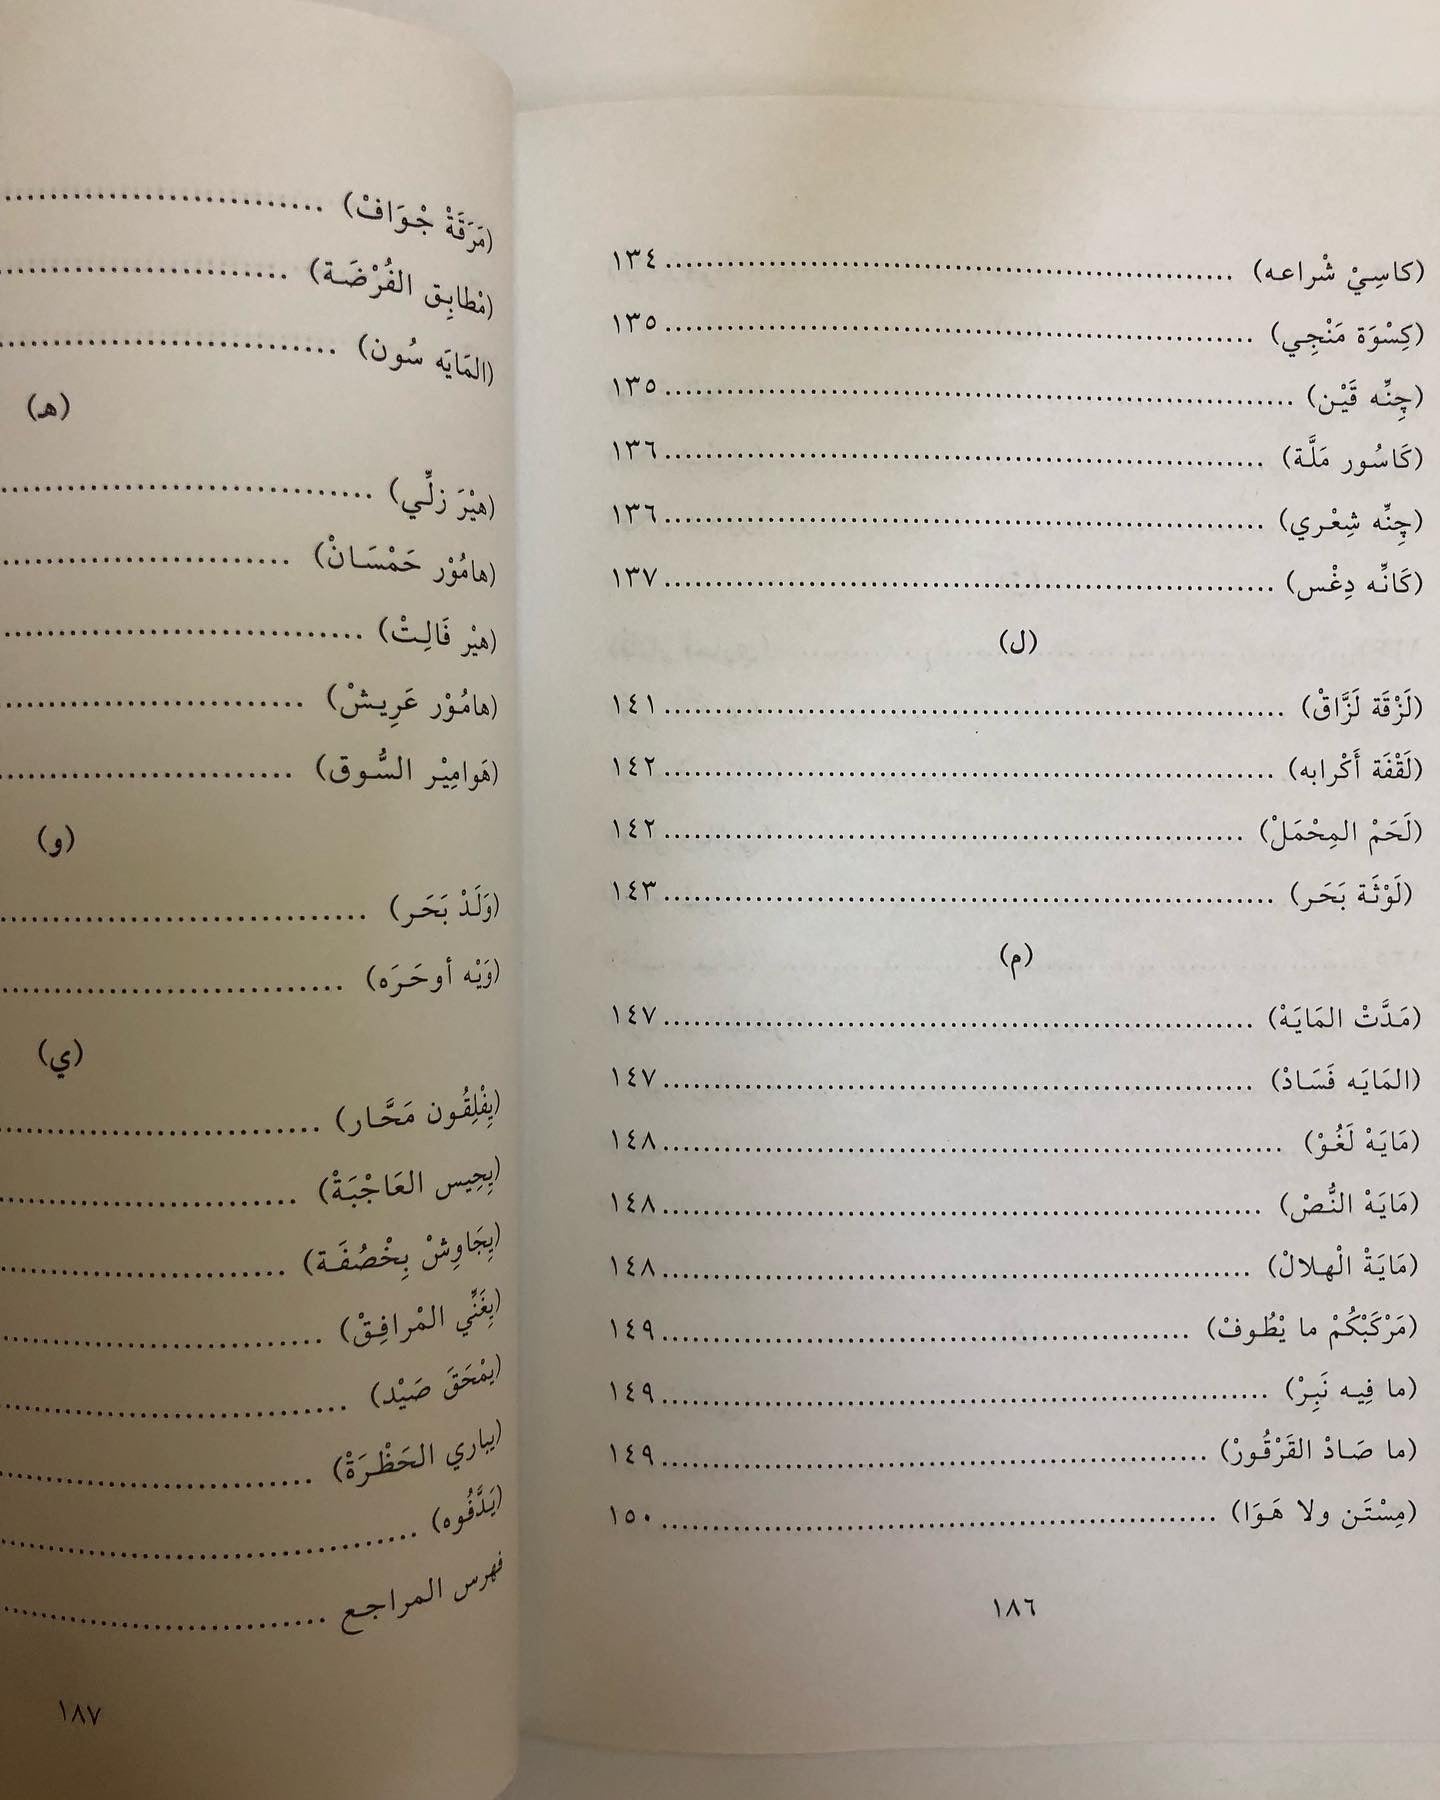 (كاسِيْ شْراعه) ........ ١٣٤
(كِسْوَة مَنْجِي) ........ ١٣٥
(چِنِّه قَيْن) ........ ١٣٥
(كَاسُور مَلَّة) ........ ١٣٦
(چِنِّه شِعْري) ........ ١٣٦
(كَانِّه دِغْس) ........ ١٣٧
(ل)
(لَزْقَة لَزَّاقْ) ........ ١٤١
(لَقْفَة أَكْرابه) ........ ١٤٢
(لَحَمْ المِحْمَلْ) ........ ١٤٢
(لَوْثَة بَحَر) ........ ١٤٣
(م)
(مَدَّتْ المَايَهْ) ........ ١٤٧
(المَايَه فَسَادْ) ........ ١٤٧
(مَايَهْ لَغُوْ) ........ ١٤٨
(مَايَهْ النُّصْ) ........ ١٤٨
(مَايَةْ الْهلالْ) ........ ١٤٨
(مَرْكَبْكُمْ ما يْطُوفْ) ........ ١٤٩
(ما فِيه نَبِرْ) ........ ١٤٩
(ما صَادْ القَرْقُورْ) ........ ١٤٩
(مِسْتَن ولا هَوَا) ........ ١٥٠
١٨٦
(مَرَقَةْ جْوَافْ) ........
(مْطابِق الفُرْضَة) ........
(المَايَه سُون) ........
(هـ)
(هيْرَ زلِّي) ........
(هامُوْر حَمْسَانْ) ........
(هيْر فَالِتْ) ........
(هامُوْر عَرِيشْ) ........
(هَوامِيْر السُّوق) ........
(و)
(وَلَدْ بَحَر) ........
(وَيْه أوحَرَه) ........
(ي)
(يِفْلِقُون مَحَّار) ........
(يِحِيس العَاجْبَةْ) ........
(يِجَاوِشْ بِخْصُفَة) ........
(يِغَنِّي المْرافِقْ) ........
(يمْحَقَ صَيْد) ........
(يباري الحَظْرَةْ) ........
(يَدَّفُوه) ........
فهرس المراجع ........
١٨٧